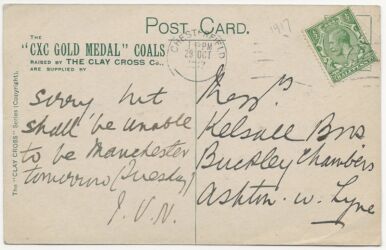 POST CARD.
THE
"CXC GOLD MEDAL" COALS
RAISED BY THE CLAY CROSS Co.,
ARE SUPPLIED BY
CHESTERFIELD
PM
29 OCT
1917
The "CLAY CROSS" Series (Copyright).
Sorry but
shall be unable
to be Manchester
tomorrow (Tuesday)
J.V.N.
Messrs
Kelsall Bros
Buckley Chambers
Ashton-u-Lyne